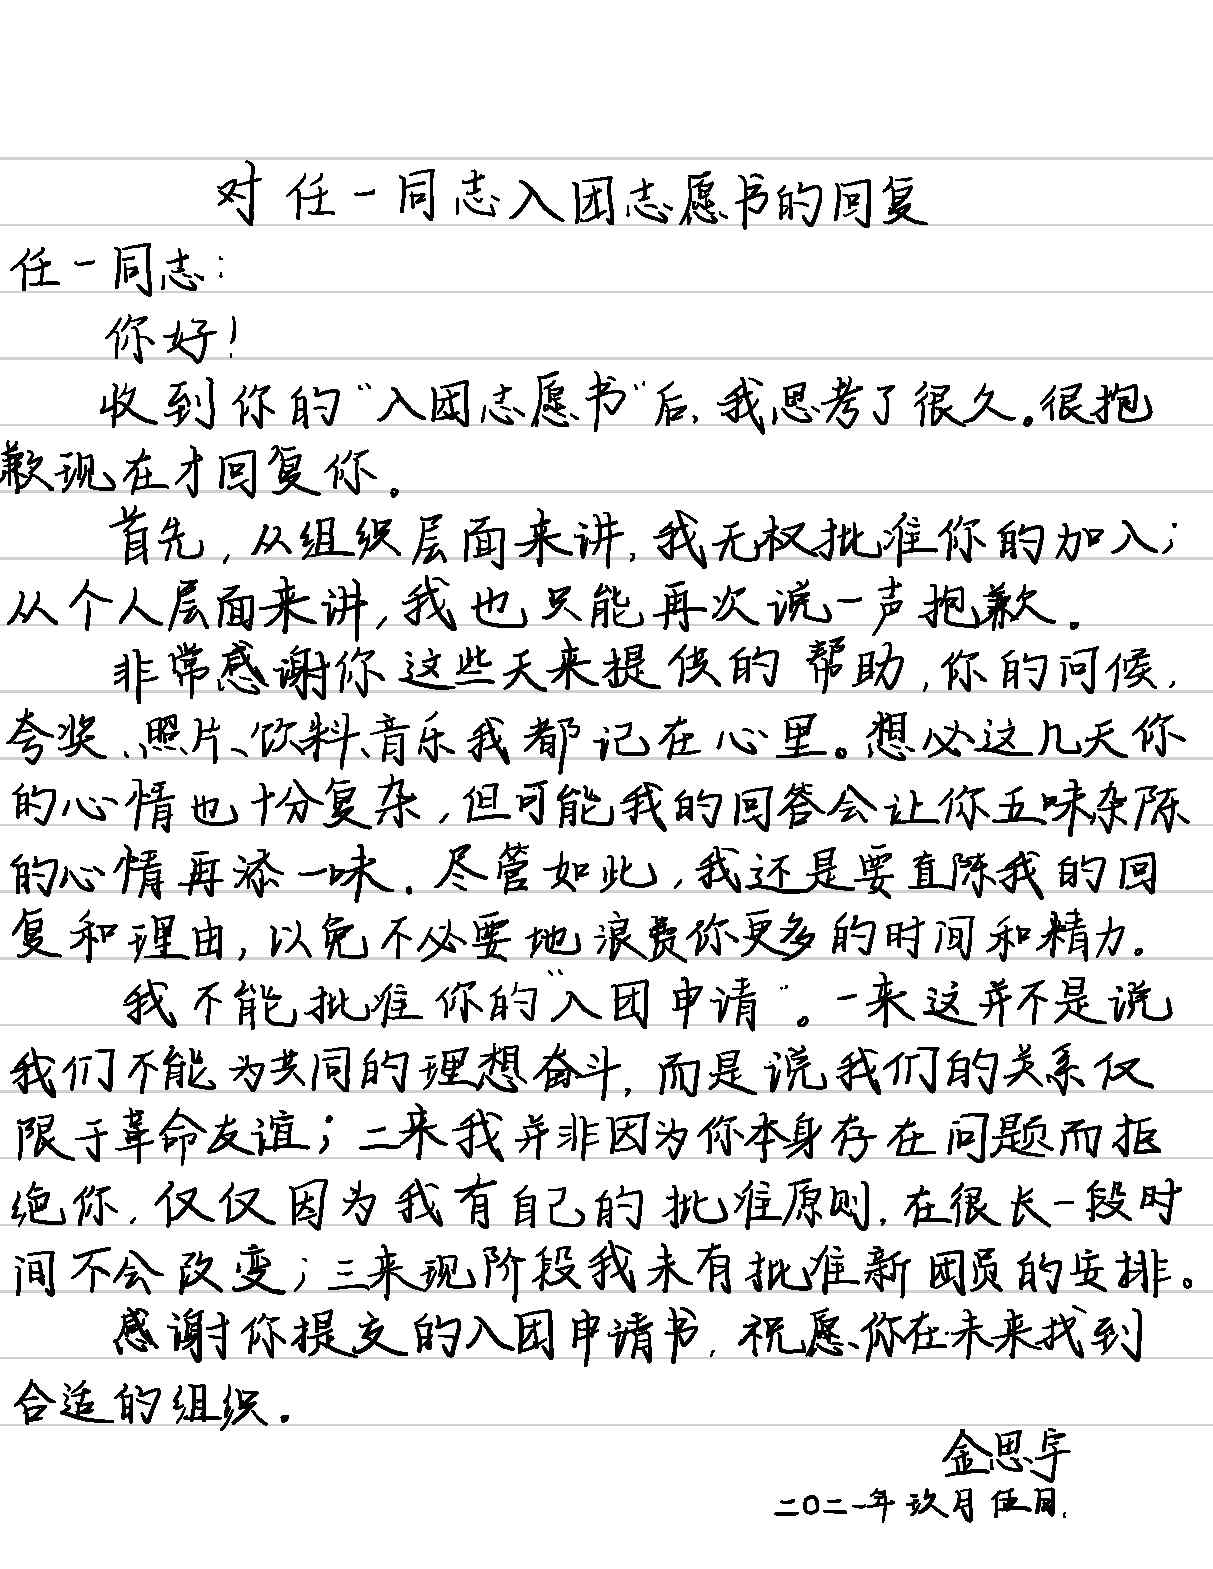 对任一同志入团志愿书的回复
任一同志：
你好！
收到你的“入团志愿书”后，我思考了很久。很抱
歉现在才回复你。
首先，从组织层面来讲，我无权批准你的加入；
从个人层面来讲，我也只能再次说一声抱歉。
非常感谢你这些天来提供的帮助，你的问候，
夸奖、照片、饮料、音乐我都记在心里。想必这几天你
的心情也十分复杂，但可能我的回答会让你五味杂陈
的心情再添一味。尽管如此，我还是要直陈我的回
复和理由，以免不必要地浪费你更多的时间和精力。
我不能批准你的“入团申请”。一来这并不是说
我们不能为共同的理想奋斗，而是说我们的关系仅
限于革命友谊；二来我并非因为你本身存在问题而拒
绝你，仅仅因为我有自己的批准原则，在很长一段时
间不会改变；三来现阶段我未有批准新团员的安排。
感谢你提交的入团申请书，祝愿你在未来找到
合适的组织。
金思宇
二〇二一年玖月伍日.